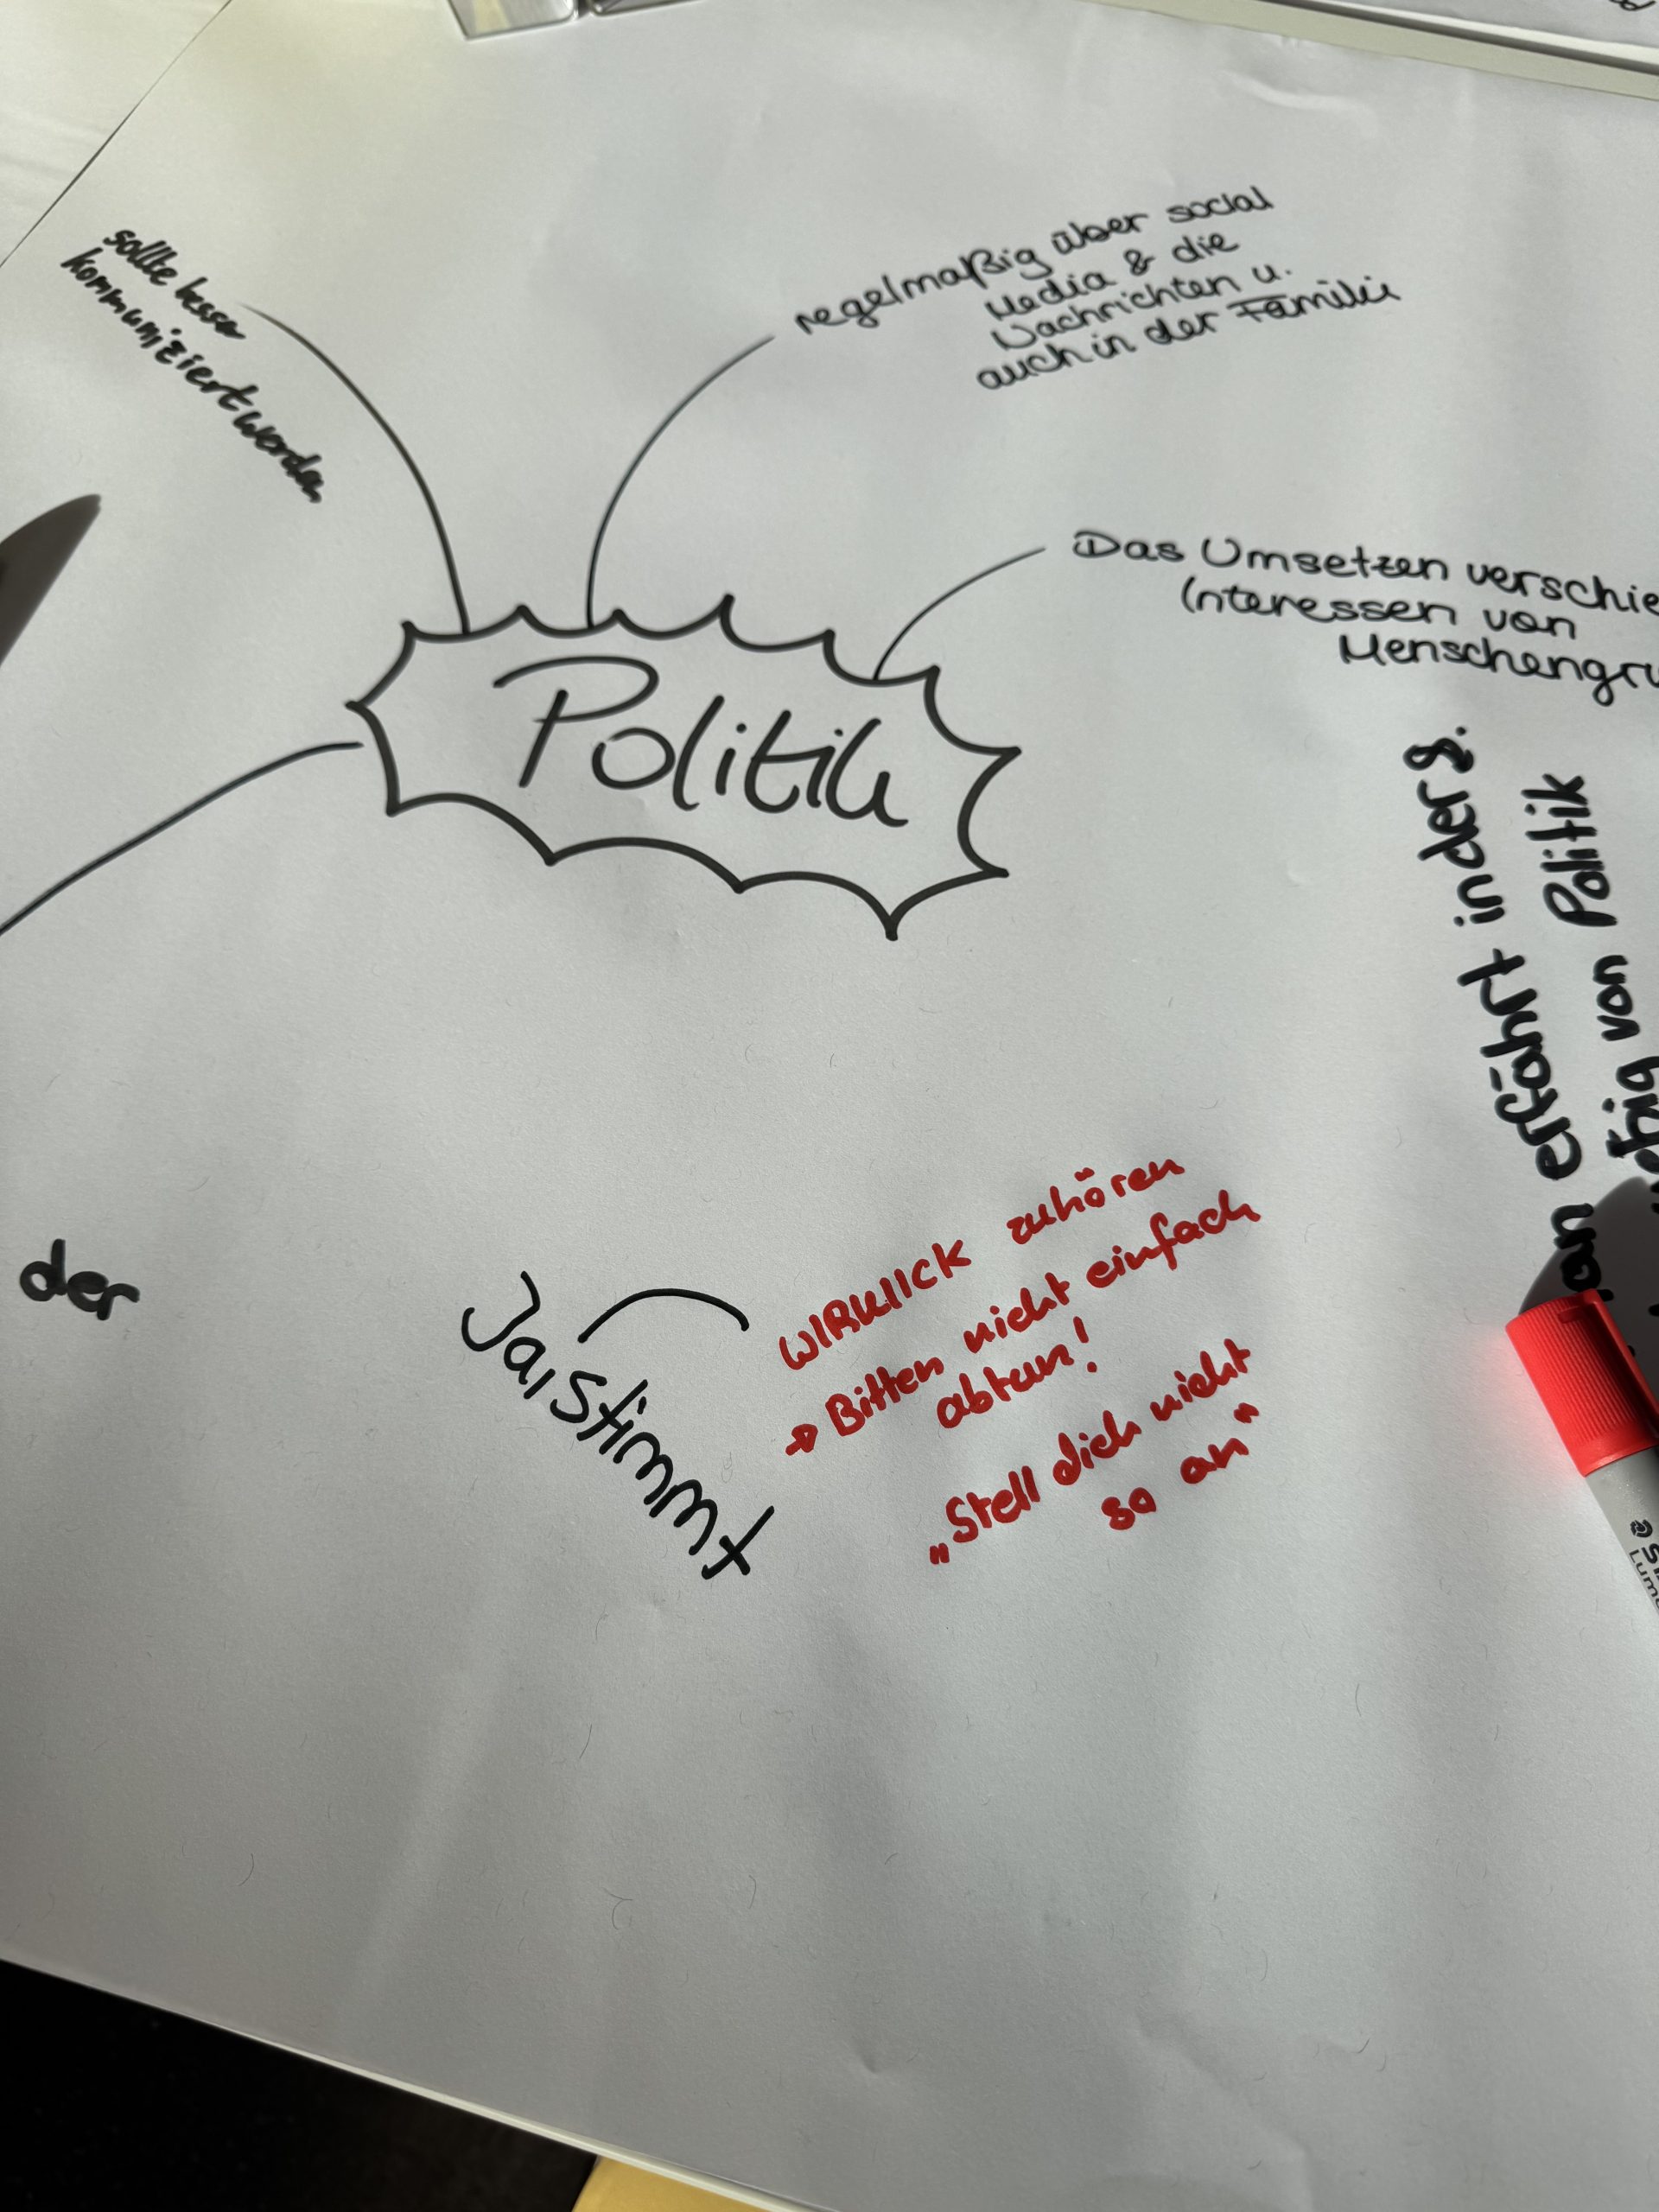 sollte besser
kommuniziert werden
regelmaßig über social
Media & die
Nachrichten u.
auch in der Familie
Das Umsetzen verschie
Interessen von
Menschengru
Politik
erfährt in der 8.
von Politik
der
Ja, stimmt
WIRKLICK zuhören
→ Bitten nicht einfach
abtun!
„Stell dich nicht
so an“